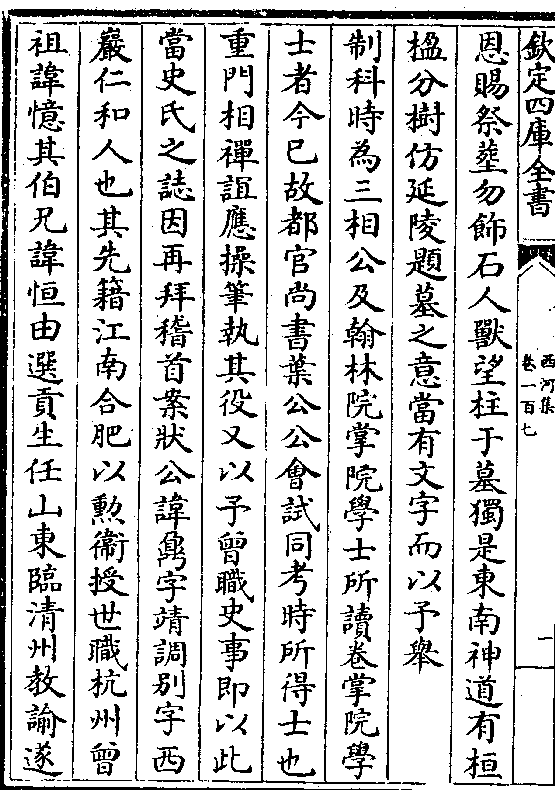 欽定四庫全書
西河集
卷一百七
一
恩賜祭塟勿飾石人獸望柱于墓獨是東南神道有桓
楹分樹仿延陵題墓之意當有文字而以予舉
制科時為三相公及翰林院掌院學士所讀卷掌院學
士者今已故都官尚書葉公公會試同考時所得士也
重門相禪誼應操筆執其役又以予曾職史事即以此
當史氏之誌因再拜稽首案狀公諱鼐字靖調别字西
巖仁和人也其先籍江南合肥以勲衛授世職杭州曾
祖諱憶其伯兄諱恒由選貢生任山東臨清州教諭遂